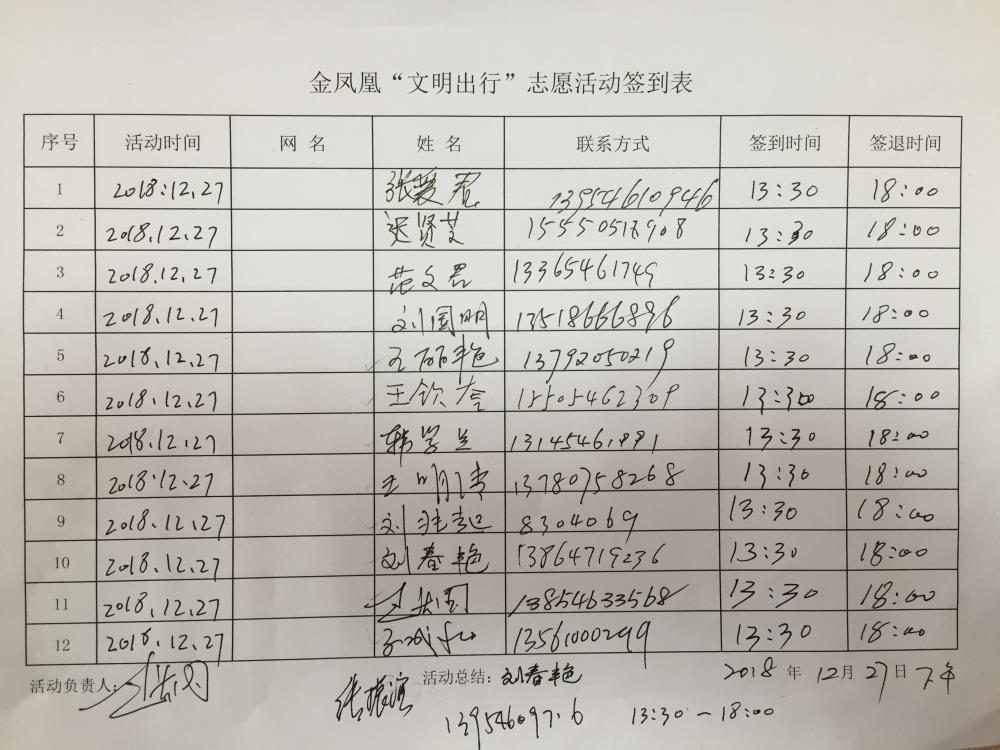 金凤凰“文明出行”志愿活动签到表
序号 活动时间 网 名 姓 名 联系方式 签到时间 签退时间
1 2018:12.27 张爱君 13954610946 13:30 18:00
2 2018.12.27 贤 13:30 18:00
3 2018.12.27 范文君 13365461749 13:30 18:00
4 2018.12.27 刘国明 13518666896 13:30 18:00
5 2018.12.27 王丽艳 13792050219 13:30 18:00
6 2018.12.27 王钦 15505462309 13:30 18:00
7 2018.12.27 韩学兰 13145461881 13:30 18:00
8 2018.12.27 王明清 13780758268 13:30 18:00
9 2018.12.27 刘 8304069 13:30 18:00
10 2018.12.27 刘春艳 13864719236 13:30 18:00
11 2018.12.27 13854633568 13:30 18:00
12 2018.12.27 13561000299 13:30 18:00
活动负责人: 活动总结: 刘春艳 2018 年 12月 27日 下午
张振 13:30-18:00